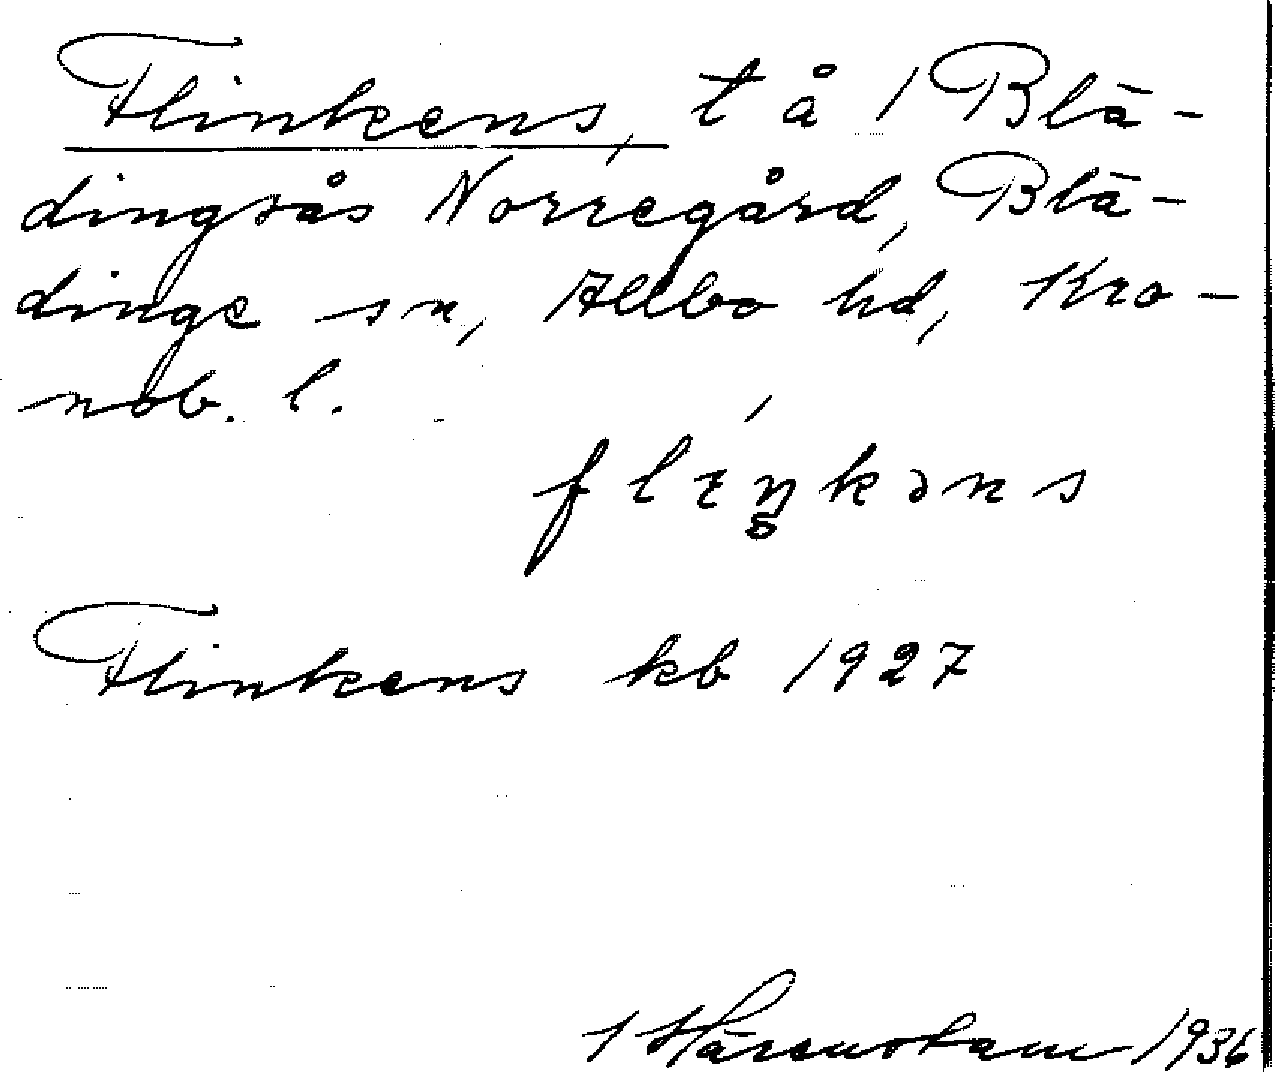 Flinkens, t å 1 Blä-
dingsås Norregård, Blä-
dinge sn, Allbo hd, Kro-
nob. l.
flıŋkəns
Flinkens kb 1927
Härenstam 1936